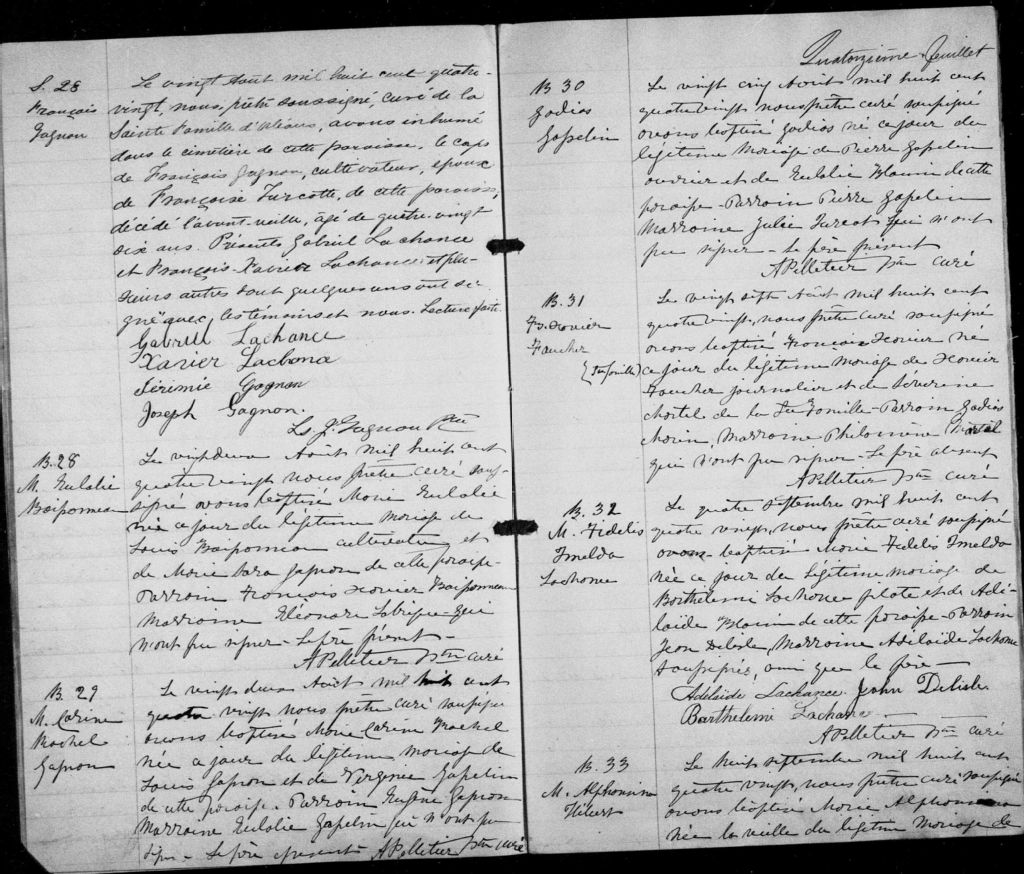 S. 28
François
Gagnon
Le vingt Aout mil huit cent quatre-
vingt, nous, prêtre soussigné, curé de la
Sainte Famille d'Orléans, avons inhumé
dans le cimetière de cette paroisse, le corps
de François Gagnon, cultivateur, époux
de Françoise Turcotte, de cette paroisse,
décédé l'avant-veille, âgé de quatre-vingt
dix ans. Présents Gabriel Lachance
et François-Xavier Lachance et plu-
sieurs autres dont quelques uns ont si-
gné avec les témoins et nous. Lecture faite.
Gabriel Lachance
Xavier Lachance
Jérémie Gagnon
Joseph Gagnon.
Ls. J. Gagnon Ptre
B. 28
M. Eulalie
Baisonneau
Le vingt deux Aout mil huit cent
quatre vingt nous prêtre curé sous-
signé avons baptisé Marie Eulalie
née ce jour du légitime mariage de
Louis cultivateur et
de Marie Sara Gagnon de cette paroisse-
Parrain François Xavier
Marraine Eléonore qui
n'ont pu signer - Le père présent -
A Pelletier Ptre curé
B. 29
M. Carine
Rachel
Gagnon
Le vingt deux Août mil huit cent
quatre vingt nous prêtre curé soussigné
avons baptisé Marie Carine Rachel
née ce jour du légitime mariage de
Louis Gagnon et de Virginie Gosselin
de cette paroisse. Parrain Gagnon
Marraine Eulalie Gosselin qui n'ont pu
signer - Le père présent A Pelletier Ptre curé
Quatorzième Feuillet
B 30
Gosselin
Le vingt cinq Août mil huit cent
quatre vingt nous prêtre curé soussigné
avons baptisé né ce jour du
légitime mariage de Pierre Gosselin
ouvrier et de Eulalie Blouin de cette
paroisse - Parrain Pierre Gosselin
Marraine Julie Turcot qui n'ont
pu signer - Le père présent
A Pelletier Ptre curé
B. 31
Fs. Xavier
Faucher
(Ste famille)
Le vingt sept Août mil huit cent
quatre vingt, nous prêtre curé soussigné
avons baptisé François Xavier né
ce jour du légitime mariage de Xavier
Faucher journalier et de Séverine
Martel de la Ste Famille - Parrain
Morin, Marraine Philomène Martel
qui n'ont pu signer - Le père absent
A Pelletier Ptre curé
B. 32
M. Fidelis
Imelda
Lachance
Le quatre Septembre mil huit cent
quatre vingt, nous prêtre curé soussigné
avons baptisé Marie Fidelis Imelda
née ce jour du légitime mariage de
Barthelemi Lachance pilote et de Adé-
laïde Blouin de cette paroisse - Parrain
Jean Delisle, Marraine Adelaïde Lachance
soussignés, ainsi que le père -
Adélaïde Lachance John Delisle
Barthelemi Lachance
A Pelletier Ptre curé
B. 33
M. Alphonsine
Hébert
Le huit septembre mil huit cent
quatre vingt, nous prêtre curé soussigné
avons baptisé Marie Alphonsine
née la veille du légitime mariage de